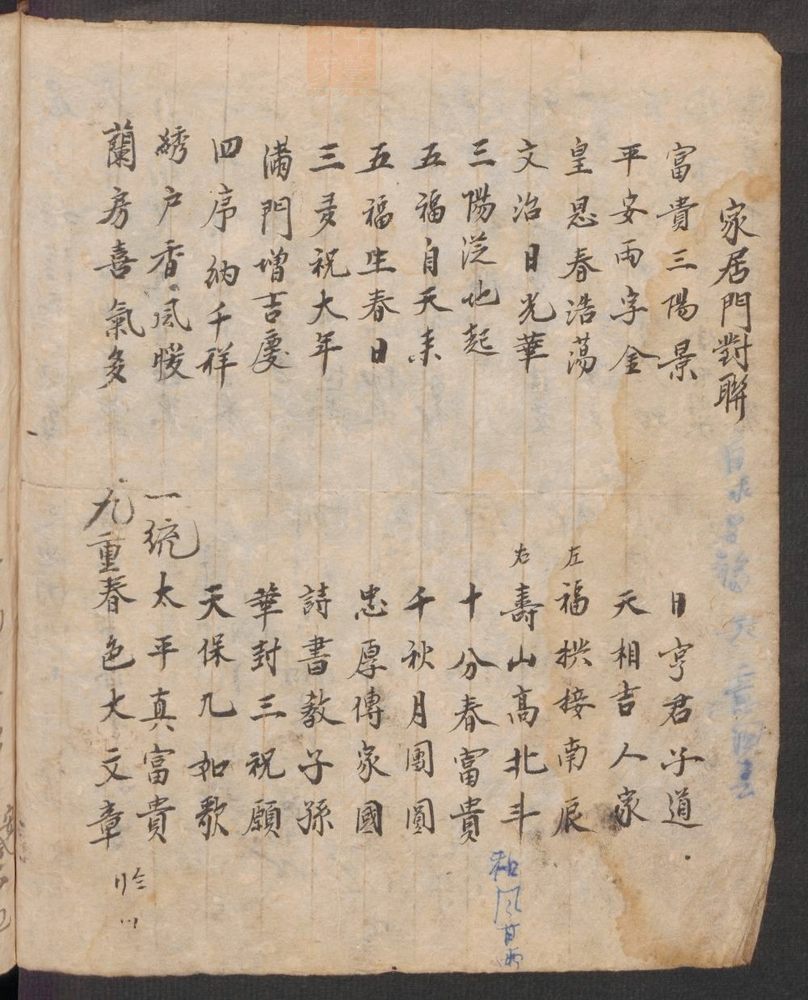 家居門對聯
富貴三陽景
平安兩字金
皇恩春浩蕩
文治日光華
三陽從地起
五福自天來
五福生春日
三多祝大年
滿門增吉慶
四序納千祥
綉户香風暖
蘭房喜氣多
日亨君子道
天相吉人家
左福拱接南辰
右壽山高北斗
十分春富貴
千秋月團圓
忠厚傳家國
詩書教子孫
華封三祝願
天保九如歌
一統太平真富貴
九重春色大文章
和風甘雨